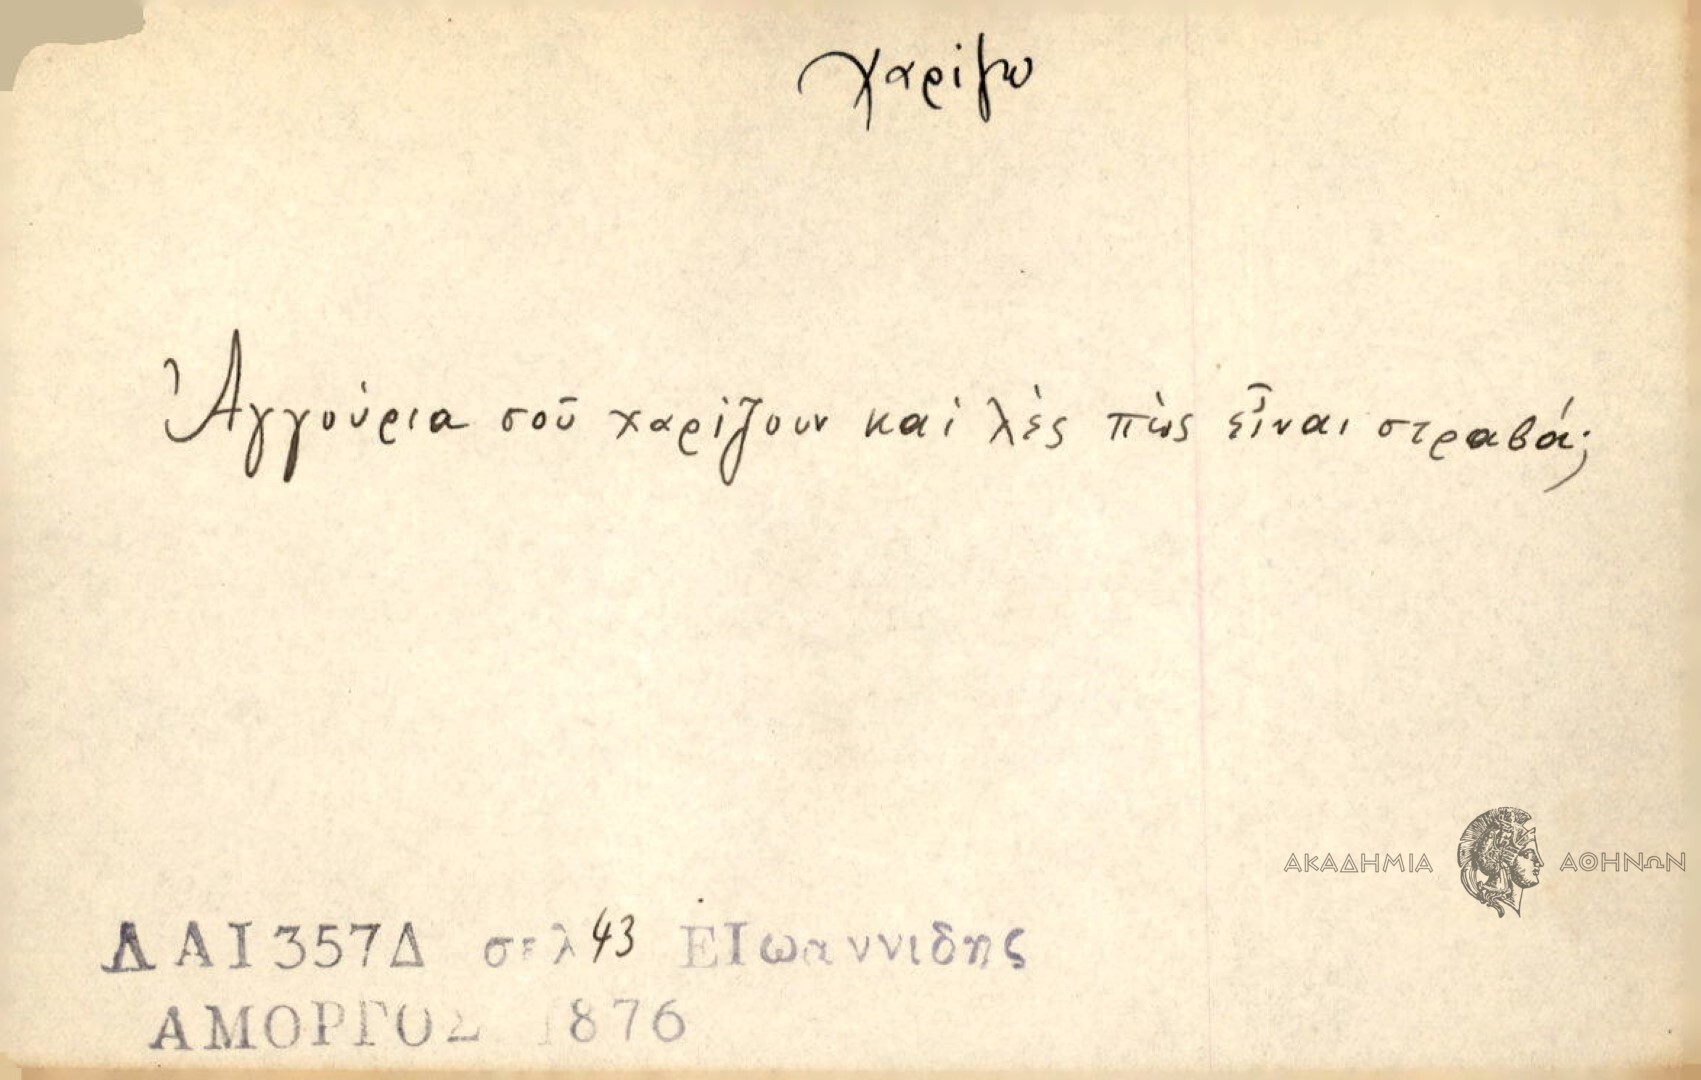 χαρίζω
Ἀγγούρια σοῦ χαρίζουν καὶ λὲς πὼς εἶναι στραβά;
ΑΚΑΔΗΜΙΑ ΑΘΗΝΩΝ
ΔΑΙ357Δ σελ 43 ΕΙωαννιδης
ΑΜΟΡΓΟΣ 1876